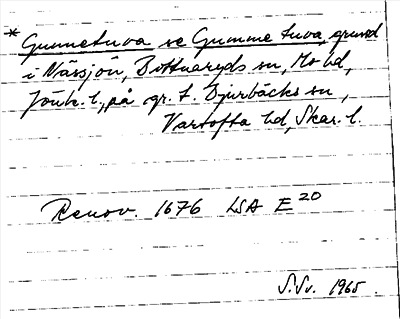 * Gunnetuva se Gumme tuva, grund
i Nässjön, Bottnaryds sn, Mo hd,
Jönk. l., på gr. t. Djurbäcks sn,
Vartofta hd, Skar. l.
Renov. 1676 LSA E 20
S.Sv. 1965.